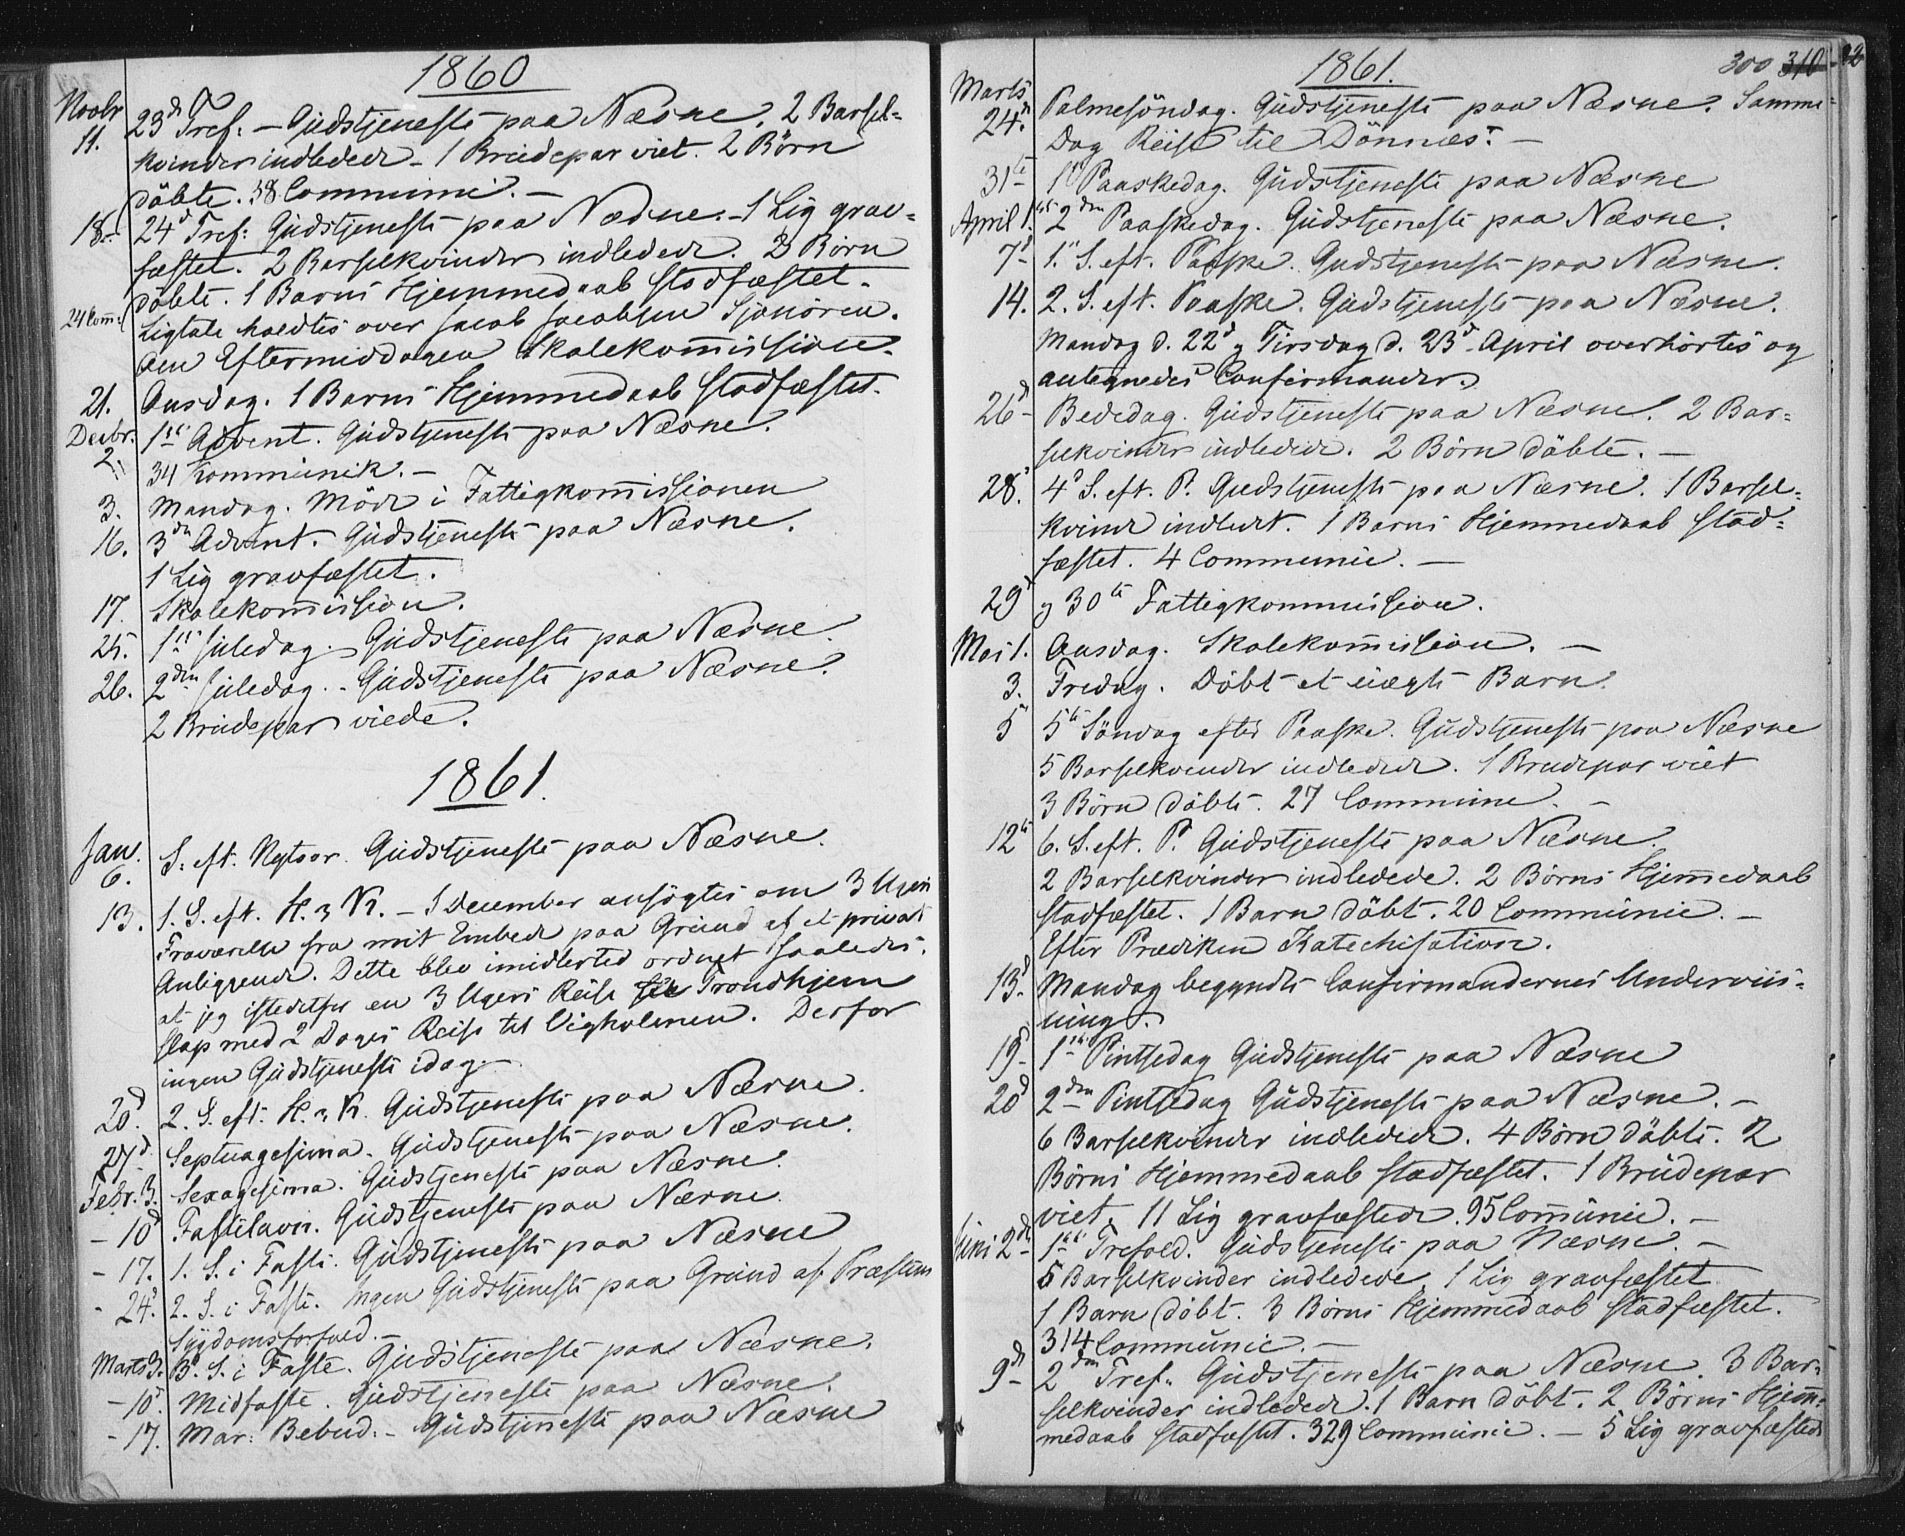 1860
Novbr
11. 23d Tref. – Gudstjeneste paa Næsne. 2 Barsel-
kvinder indledede – 1 Brudepar viet. 2 Börn
döbte. 38 Communi. –
18. 24d Tref. Gudstjeneste paa Næsne. – 1 Lig grav-
fæstet. 2 Barselkvinder indledede. 2 Börn
döbte. 1 Barns Hjemmedaab stadfæstet.
24 Com. Ligtale holdtes over Jacob Jacobsen Sjonören.
Om Eftermiddagen Skolekommission.
21. Onsdag. 1 Barns Hjemmedaab stadfæstet.
Decbr.
2. 1ste Advent. Gudstjeneste paa Næsne.
34 Kommunik. –
3. Mandag. Möde i Fattigkommissionen
16. 3die Advent. Gudstjeneste paa Næsne.
1 Lig gravfæstet.
17. Skolekommission.
25. 1ste Juledag. Gudstjeneste paa Næsne.
26. 2den Juledag. – Gudstjeneste paa Næsne.
2 Brudepar viede.
1861.
Jan.
6. S. eft. Nytaar. Gudstjeneste paa Næsne.
13. 1. S. eft. H. 3 K. – I December ansögtes om 3 Ugers
Fraværelse fra mit Embede paa Grund af et privat
Anliggende. Dette blev imidlertid ordnet saaledes,
at jeg istedetfor en 3 Ugers Reise til Trondhjem
slap med 2 Dages Reise til Vigholmen. Derfor
ingen Gudstjeneste idag. –
20d. 2. S. eft. H. 3 K. Gudstjeneste paa Næsne.
27d. Septuagesima. Gudstjeneste paa Næsne.
Febr. 3. Sexagesima. Gudstjeneste paa Næsne.
– 10d Fastelavn. Gudstjeneste paa Næsne.
– 17. 1. S. i Faste. Gudstjeneste paa Næsne
– 24d. 2. S. i Faste. Ingen Gudstjeneste paa Grund af Præstens
Sygdomsforfald. –
Marts 3. 3d. S. i Faste. Gudstjeneste paa Næsne.
– 10d. Midfaste. Gudstjeneste paa Næsne.
– 17. Mar: Bebud. – Gudstjeneste paa Næsne
1861.
300 310
Marts
24d. Palmesöndag. Gudstjeneste paa Næsne. Samme
Dag Reise til Dönnæs. –
31te 1ste Paaskedag. Gudstjeneste paa Næsne
April 1ste 2den Paaskedag. Gudstjeneste paa Næsne.
7d 1. S. eft. Paaske. Gudstjeneste paa Næsne.
14. 2. S. eft. Paaske. Gudstjeneste paa Næsne.
Mandag d. 22d og Tirsdag d. 23d April overhörtes og
antegnedes Confirmander.
26d Bededag. Gudstjeneste paa Næsne. 2 Bar-
selkvinder indledede. 2 Börn döbte. –
28d. 4d S. eft. P. Gudstjeneste paa Næsne. 1 Barsel-
kvinde indledet. 1 Barns Hjemmedaab stad-
fæstet. 4 Communic. –
29d og 30te Fattigkommission.
Mai 1. Onsdag. Skolekommission. –
3. Fredag. Döbt et uægte Barn.
5 5te Söndag efter Paaske. Gudstjeneste paa Næsne
5 Barselkvinder indledede. 1 Brudepar viet
3 Börn döbte. 27 Commune. –
12te 6. S. eft. P. Gudstjeneste paa Næsne.
2 Barselkvinder indledede. 2 Börns Hjemmedaab
stadfæstet. 1 Barn döbt. 20 Communic. –
Efter Prædiken Katechisation.
13d. Mandag begyndte Confirmandernes Underviis-
ning.
19d 1ste Pintsedag Gudstjeneste paa Næsne
20d 2den Pintsedag Gudstjeneste paa Næsne. –
6 Barselkvinder indledede. 4 Börn döbte. 2
Börns Hjemmedaab stadfæstet. 1 Brudepar
viet. 11 Lig gravfæstede. 95 Communic. –
Juni 2d 1ste Trefold. Gudstjeneste paa Næsne. –
5 Barselkvinder indledede, 1 Lig gravfæstet
1 Barn döbt. 3 Börns Hjemmedaab stadfæstet.
314 Communic. –
9d 2den Tref. Gudstjeneste paa Næsne. 3 Bar-
selkvinder indledede. 1 Barn döbt. 2 Börns Hjem-
medaab stadfæstet. 329 Communic. – 5 Lig gravfæstede